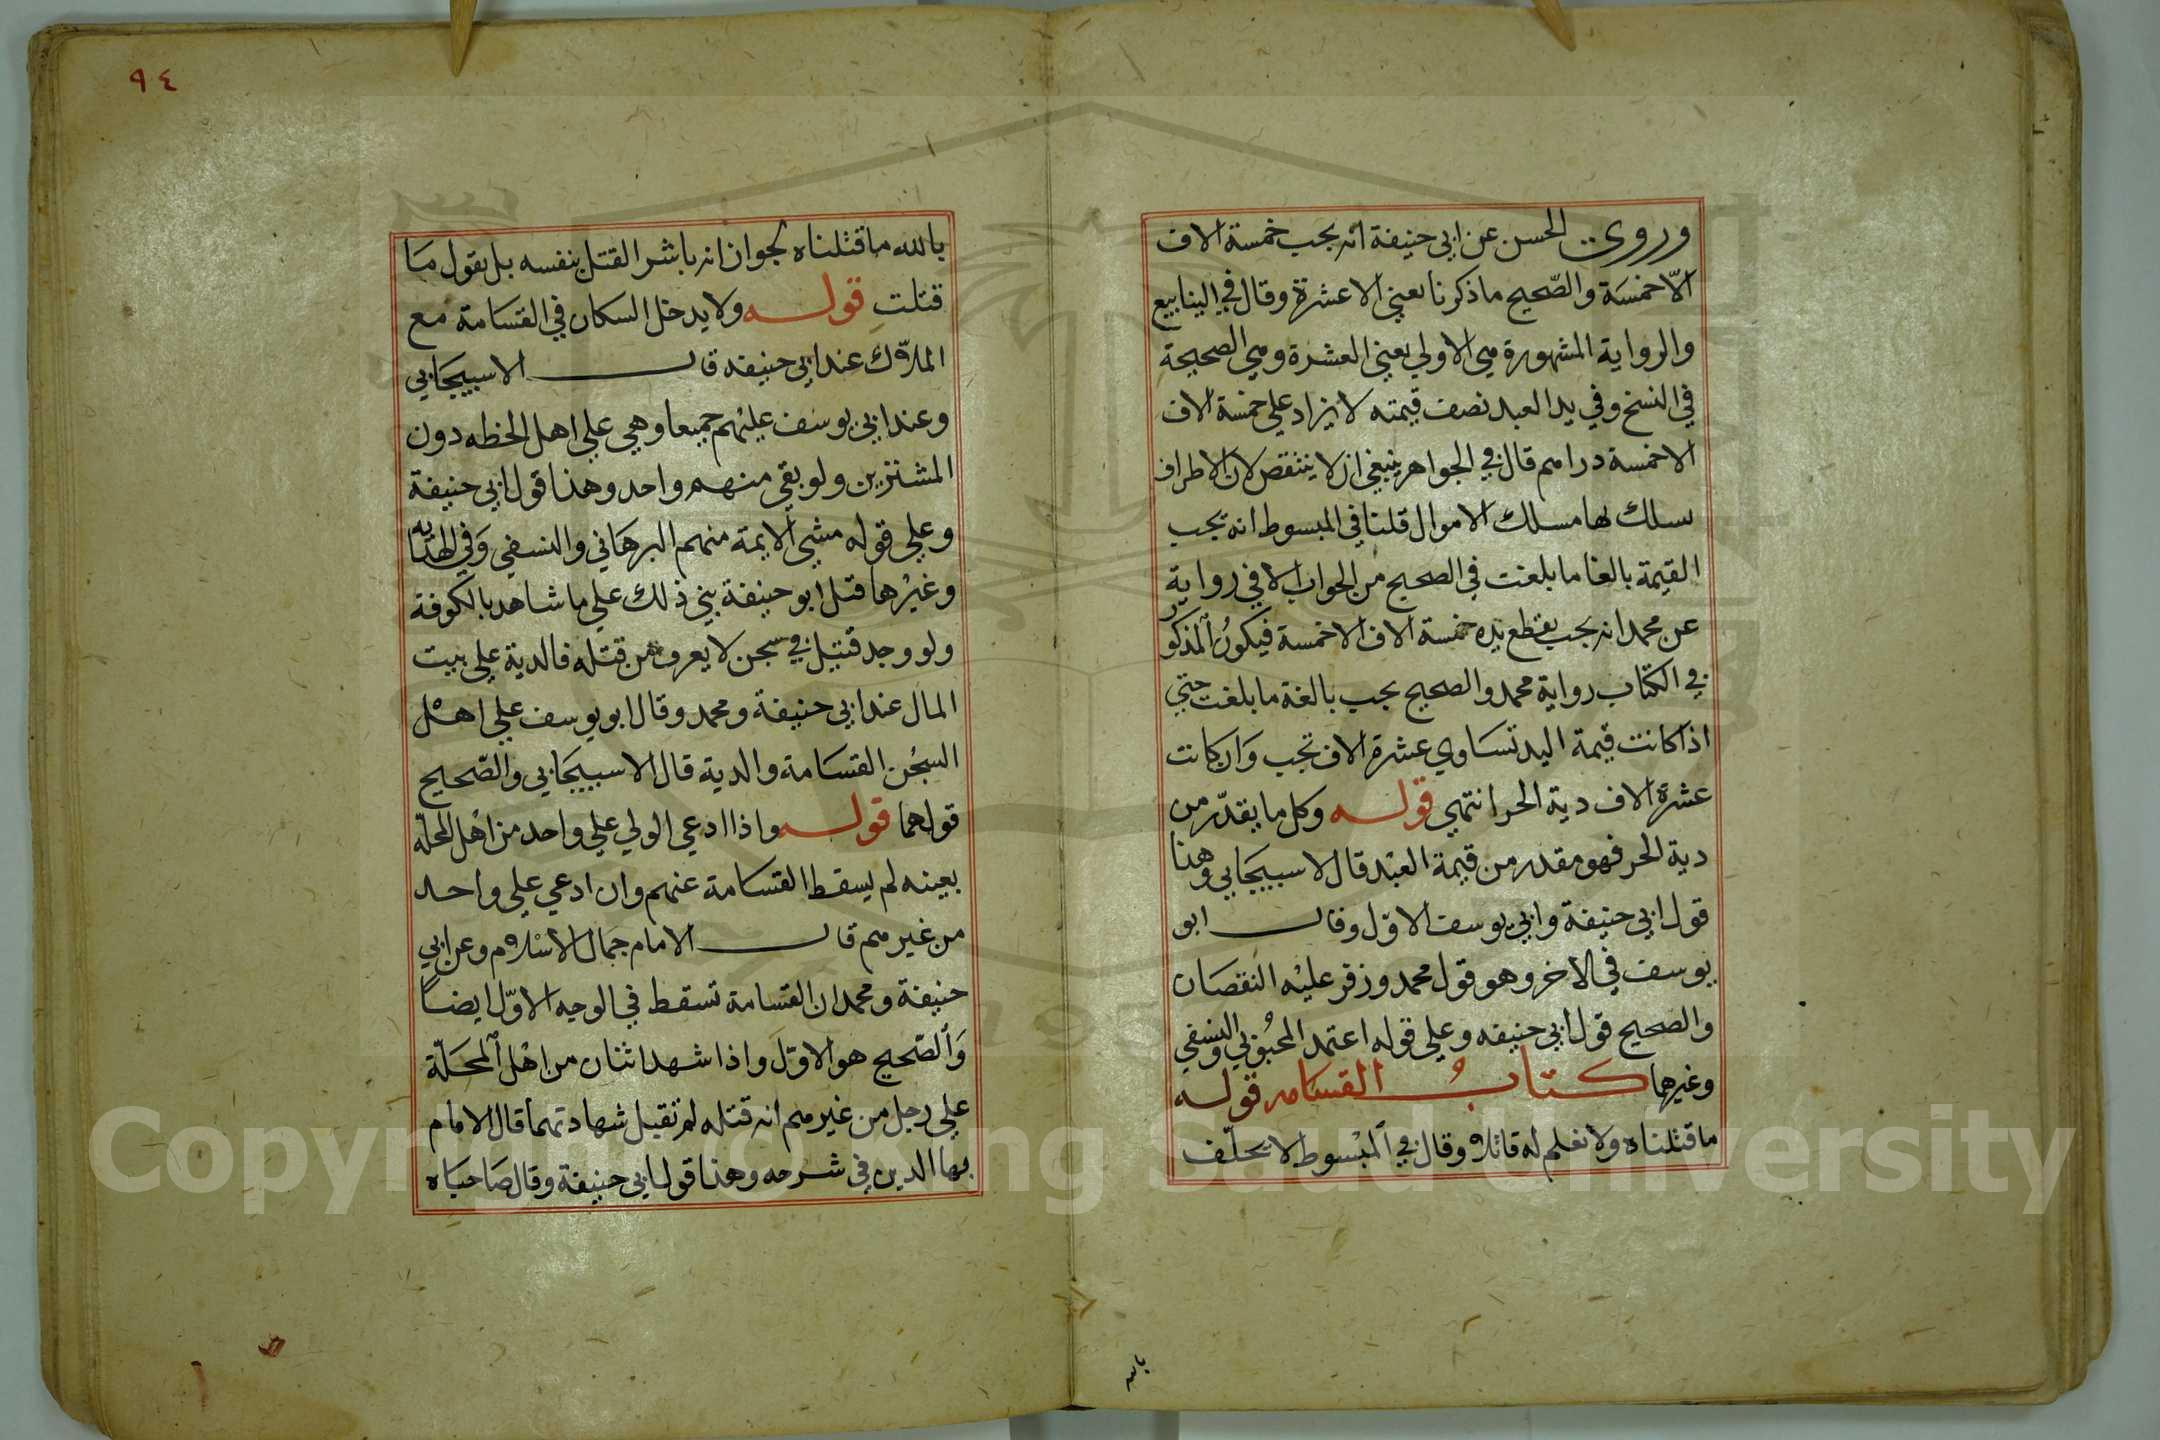 وروي الحسن عن ابي حنيفة انه يجب خمسة الاف
الا خمسة والصحيح ما ذكرنا يعني الا عشرة وقال في الينابيع
والرواية المشهورة هي الاولي يعني العشرة وهي الصحيحة
في النسخ وفي يد العبد نصف قيمته لا يزاد علي خمسة الاف
الا خمسة دراهم قال في الجواهر ينبغي ان لا ينتقص لان الاطراف
يسلك لها مسلك الاموال قلنا في المبسوط انه يجب
القيمة بالغا ما بلغت في الصحيح من الجواب الا في رواية
عن محمد انه يجب بقطع يده خمسة الاف الا خمسة فيكون المذكور
في الكتاب رواية محمد والصحيح يجب بالغة ما بلغت حتي
اذا كانت قيمة اليد تساوي عشرة الاف تجب وان كانت
عشرة الاف دية الحر انتهي قوله وكل ما يقدر من
دية الحر فهو مقدر من قيمة العبد قال الاسبيجابي وهذا
قول ابي حنيفة وابي يوسف الاول وقال ابو
يوسف في الاخر وهو قول محمد وزفر عليه النقصان
والصحيح قول ابي حنيفه وعلي قوله اعتمد المحبوبي والنسفي
وغيرهما كتاب القسامه قوله
ما قتلناه ولا نعلم له قاتلا وقال في المبسوط لا يحلف
بالله
٩٤
بالله ما قتلناه لجوان انه باشر القتل بنفسه بل يقول ما
قتلت قوله ولا يدخل السكان في القسامة مع
الملاك عند ابي حنيفه قال الاسبيجابي
وعند ابي يوسف عليهم جميعا وهي علي اهل الخطه دون
المشترين ولو بقي منهم واحد وهذا قول ابي حنيفة
وعلي قوله مشي الايمة منهم البرهاني والنسفي وفي الهدايه
وغيرها قتل ابو حنيفة بني ذلك علي ما شاهد بالكوفة
ولو وجد قتيل في سجن لا يعرف من قتله فالدية علي بيت
المال عند ابي حنيفة ومحمد وقال ابو يوسف علي اهل
السجن القسامة والدية قال الاسبيجابي والصحيح
قولهما قوله واذا ادعي الولي علي واحد من اهل المحلة
بعينه لم يسقط القسامة عنهم وان ادعي علي واحد
من غيرهم قال الامام جمال الاسلام وعن ابي
حنيفة ومحمد ان القسامة تسقط في الوجه الاول ايضا
والصحيح هو الاول واذا شهد اثنان من اهل المحلة
علي رجل من غيرهم انه قتله لم تقبل شهادتهما قال الامام
بها الدين في شرحه وهذا قول ابي حنيفة وقال صاحباه
Copyright © King Saud University